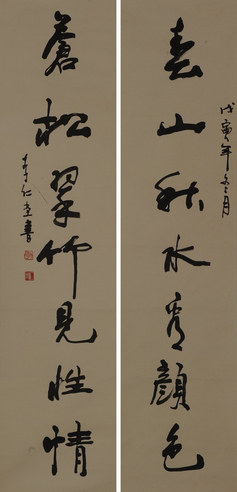 戊寅年冬月
春山秋水秀顔色
蒼松翠竹見性情